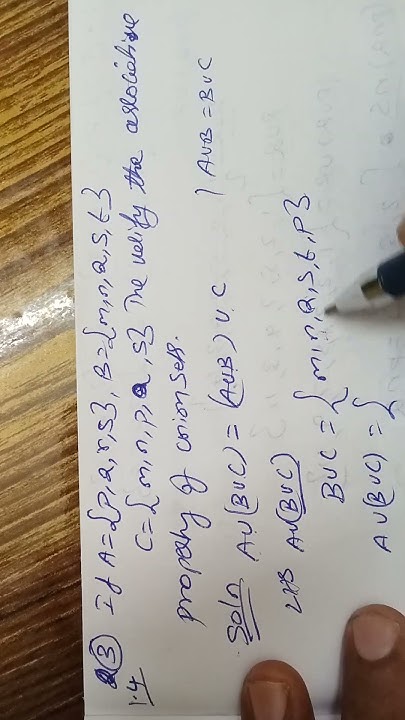 Q③ If A={p,q,r,s}, B={m,n,q,s,t}
1.4 C={m,n,p,q,s} The verify the associative
property of union sets.
Soln A∪(B∪C) = (A∪B)∪C | A∪B = B∪C
LHS A∪(B∪C)
B∪C = { m,n,q,s,t,p}
A∪(B∪C) = {